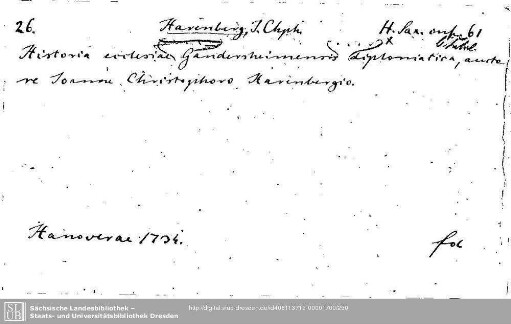 26. Harenberg, J. Chph. H. Sax. inf. 61
Historia ecclesiae Gandersheimensis diplomatica, aucto
re Joanne Christophoro Harenbergio.
Hanoverae 1734. fol
SLUB
Sächsische Landesbibliothek –
Staats- und Universitätsbibliothek Dresden